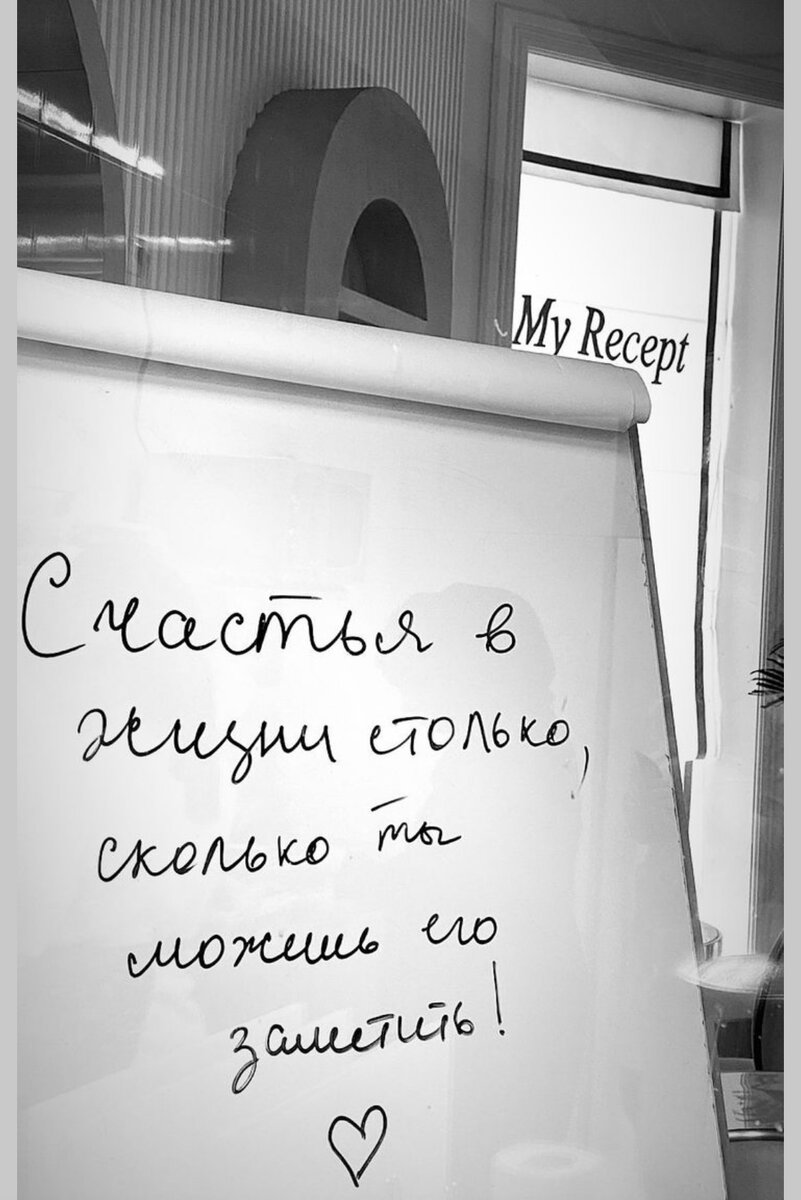 My Recept
Счастья в
жизни столько,
сколько ты
можешь его
заметить!